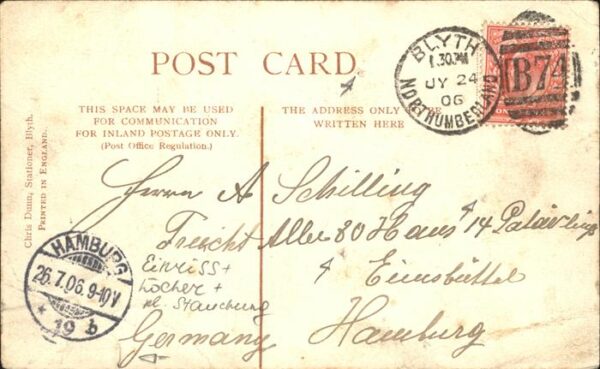 POST CARD.
THIS SPACE MAY BE USED
FOR COMMUNICATION
FOR INLAND POSTAGE ONLY.
(Post Office Regulation.)
THE ADDRESS ONLY BE
WRITTEN HERE
Chris Dunn, Stationer, Blyth.
PRINTED IN ENGLAND.
BLYTH
1.30PM
JY 24
06
NORTHUMBERLAND
B74
Herrn A Schilling
Allee 80 Haus 14
Eimsbüttel
Hamburg
Germany
Einriss +
Löcher +
kl Stauchung
HAMBURG
26.7.06.9-10V
* 19 b